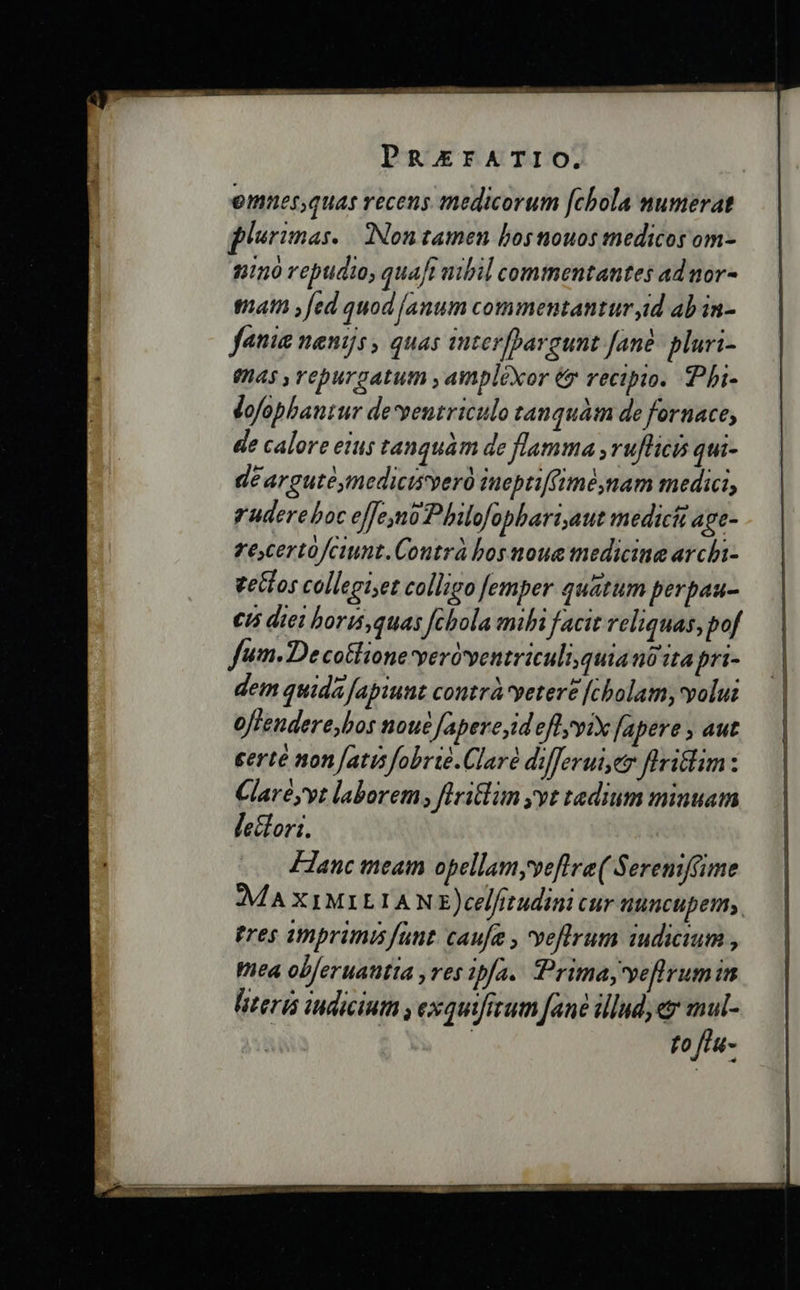 PRÆFATIO.
omnes,quas recens medicorum ſchola numerat
plurimas. Non tamen hos nouos medicos om-
ninò repudio, quaſi nihil commentantes ad nor-
mam, ſed quod ſanum commentantur,id ab in-
ſaniæ nænijs, quas interſpargunt ſanè pluri-
mas, repurgatum, amplexor & recipio. Phi-
loſophantur de ventriculo tanquàm de fornace,
de calore eius tanquàm de flamma, ruſticis qui-
dē argutè,medicis verò ineptiſsimè,nam medici,
rudere hoc eſſe,nō Philoſophari,aut medicū age-
re,certò ſciunt. Contrà hos nouæ medicinæ archi-
tectos collegi,et colligo ſemper quātum perpau-
cis diei horis,quas ſchola mihi facit reliquas, poſ
ſum. De coctione verò ventriculi,quia nō ita pri-
dem quidā ſapiunt contrà veterē ſcholam, volui
oſtendere,hos nouè ſapere,id eſt,vix ſapere, aut
certè non ſatis ſobriè. Clarè differui,& ſtrictim:
Clarè,vt laborem, ſtrictim,vt tædium minuam
lectori.
Hanc meam opellam,veſtræ( Sereniſsime
MAXIMILIANE)celſitudini cur nuncupem,
tres imprimis ſunt cauſæ, veſtrum iudicium,
mea obſeruantia, res ipſa. Prima, veſtrum in
literis iudicium, exquiſitum ſanè illud, & mul-
to ſtu-